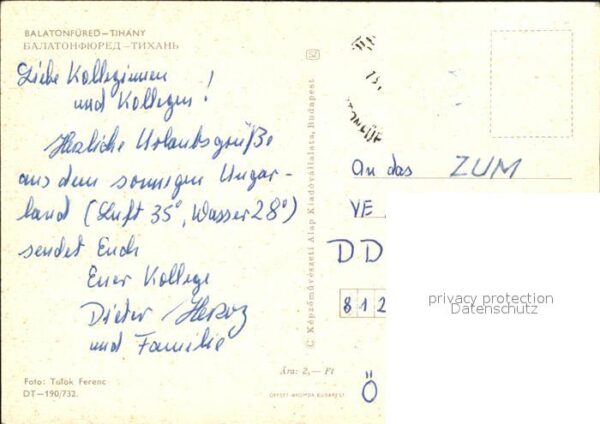 BALATONFÜRED–TIHANY
БАЛАТОНФЮРЕД–ТИХАНЬ
Liebe Kolleginnen
und Kollegen!
Herzliche Urlaubsgrüße
aus dem sonnigen Ungar-
land (Luft 35°, Wasser 28°)
sendet Euch
Euer Kollege
Dieter
und Familie
Foto: Tulok Ferenc
DT–190/732.
C Képzőművészeti Alap Kiadóvállalata, Budapest
Ára: 2,— Ft
OFFSET-NYOMDA BUDAPEST
An das ZUM
VE
DD
812
Ö
privacy protection
Datenschutz